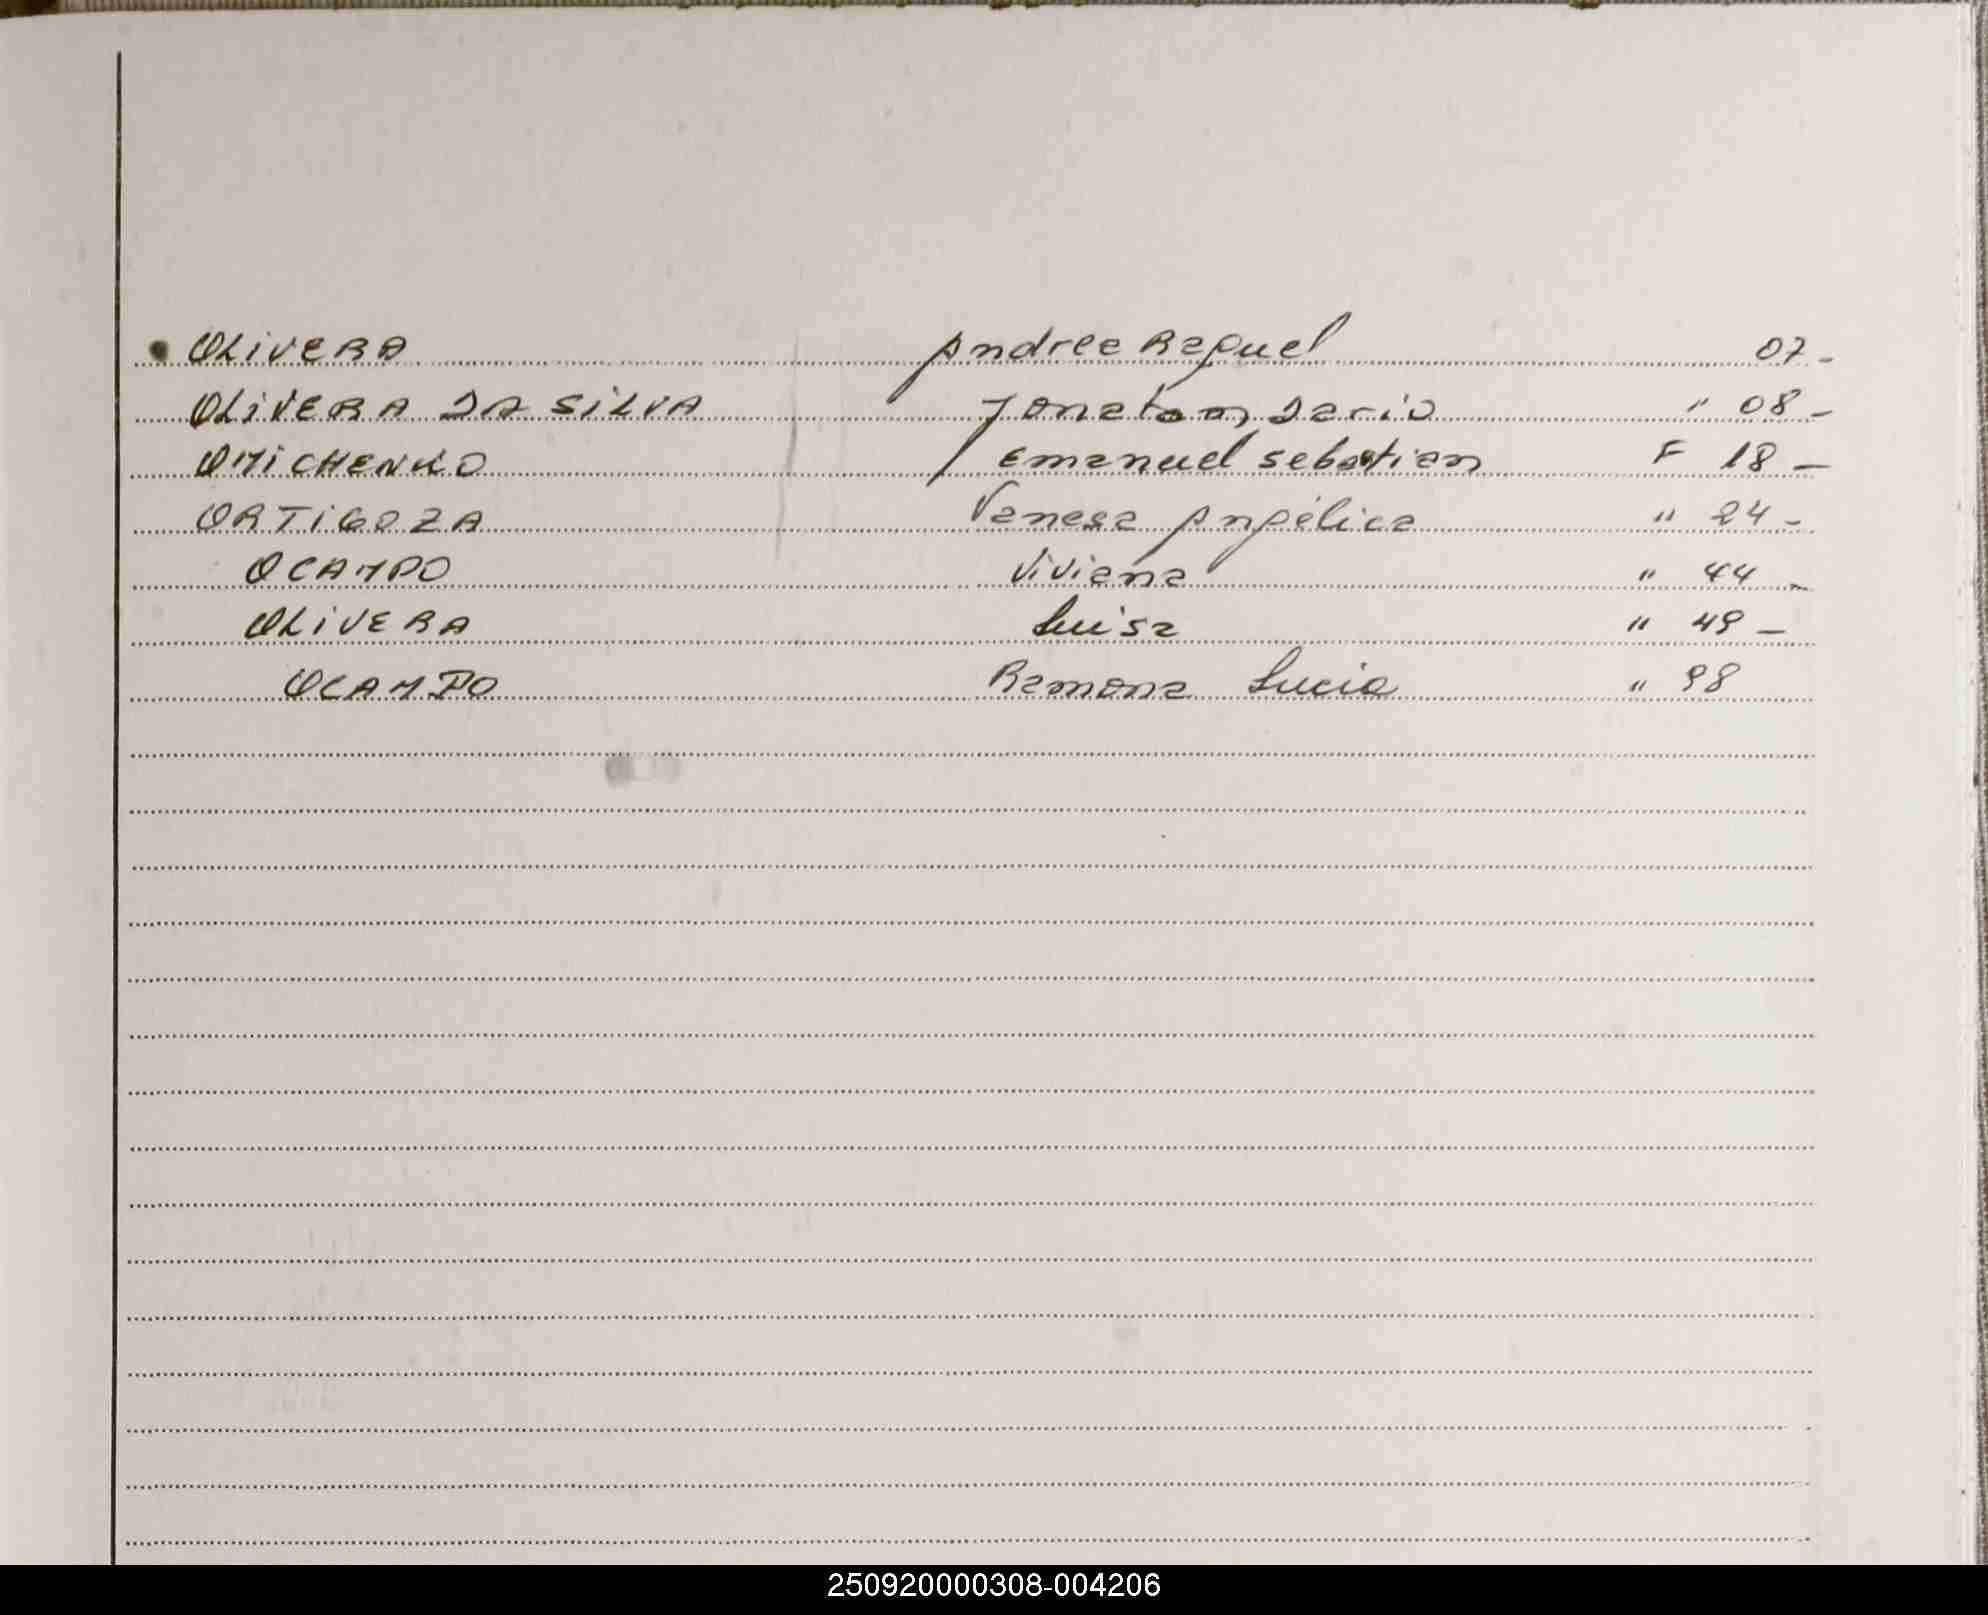 OLIVERA Andrea Raquel 07 -
OLIVERA DA SILVA Jonatan Dario " 08 -
OMICHENKO Emanuel Sebastian F 18 -
ORTIGOZA Vanesa Angélica " 24 -
OCAMPO Viviana " 44 -
OLIVERA Luisa " 49 -
OCAMPO Ramona Lucia " 98
250920000308-004206